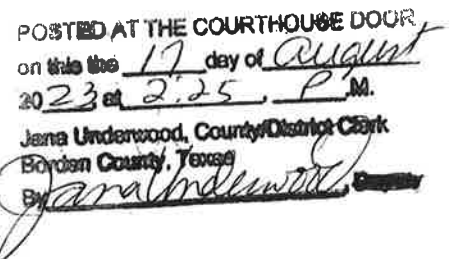 POSTED AT THE COURTHOUSE DOOR
on this the 17 day of August
2023 at 2:25, P.M.
Jana Underwood, County/District Clerk
Borden County, Texas
By Jana Underwood, Deputy